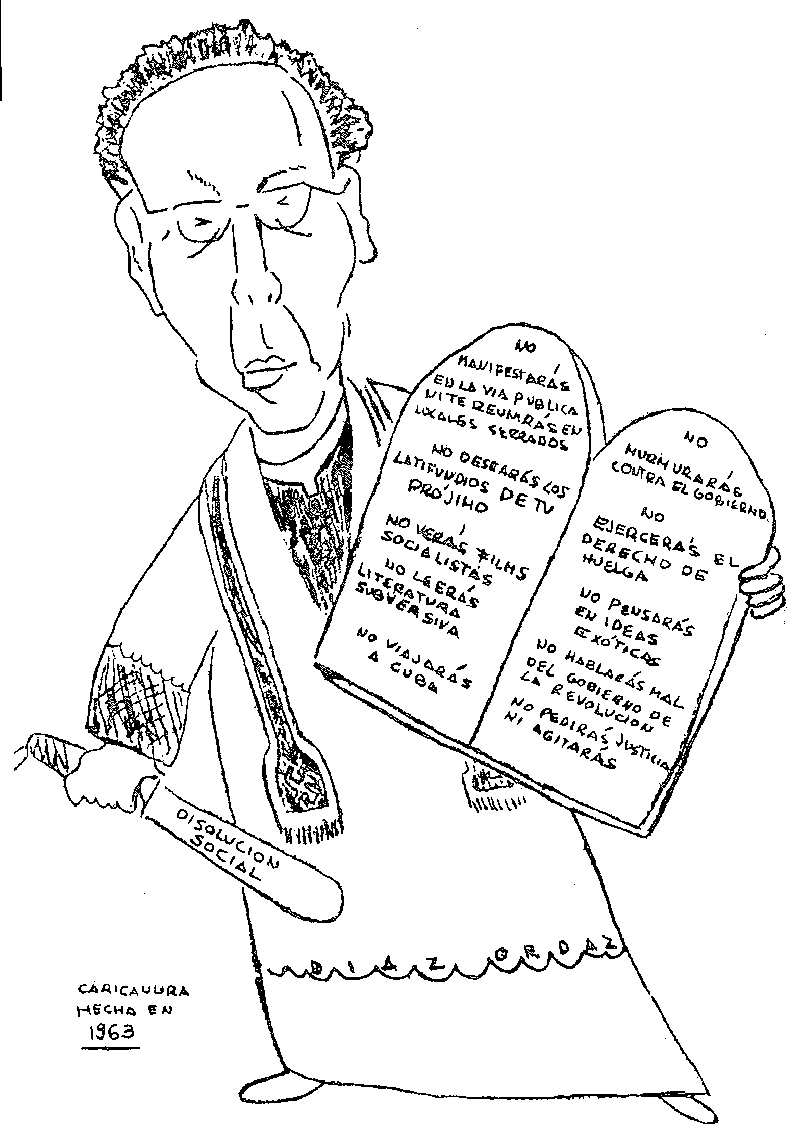 NO
MANIFESTARÁS
EN LA VIA PUBLICA
NI TE REUNIRÁS EN
LOCALES SERRADOS
NO DESEARÁS LOS
LATIFUNDIOS DE TU
PRÓJIMO
NO VERÁS FILMS
SOCIALISTAS
NO LEERÁS
LITERATURA
SUBVERSIVA
NO VIAJARÁS
A CUBA
NO
MURMURARÁS
CONTRA EL GOBIERNO.
NO
EJERCERÁS EL
DERECHO DE
HUELGA
NO PENSARÁS
EN IDEAS
EXÓTICAS
NO HABLARÁS MAL
DEL GOBIERNO DE
LA REVOLUCION
NO PEDIRÁS JUSTICIA
NI AGITARÁS
DISOLUCION
SOCIAL
DIAZ ORDAZ
CARICAUURA
HECHA EN
1963